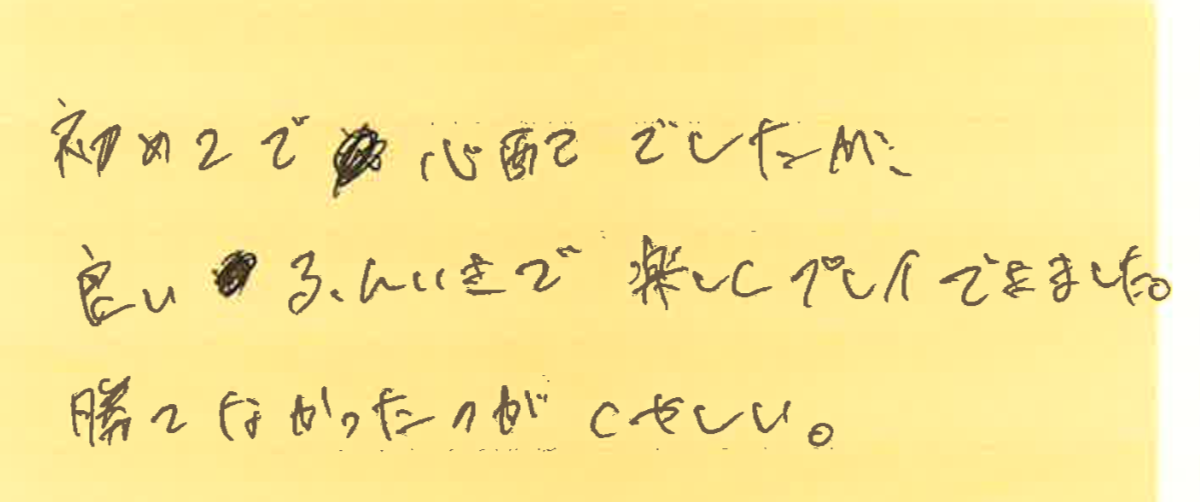 初めてで心配でしたが、
良いふんいきで楽しくプレイできました。
勝てなかったのがくやしい。